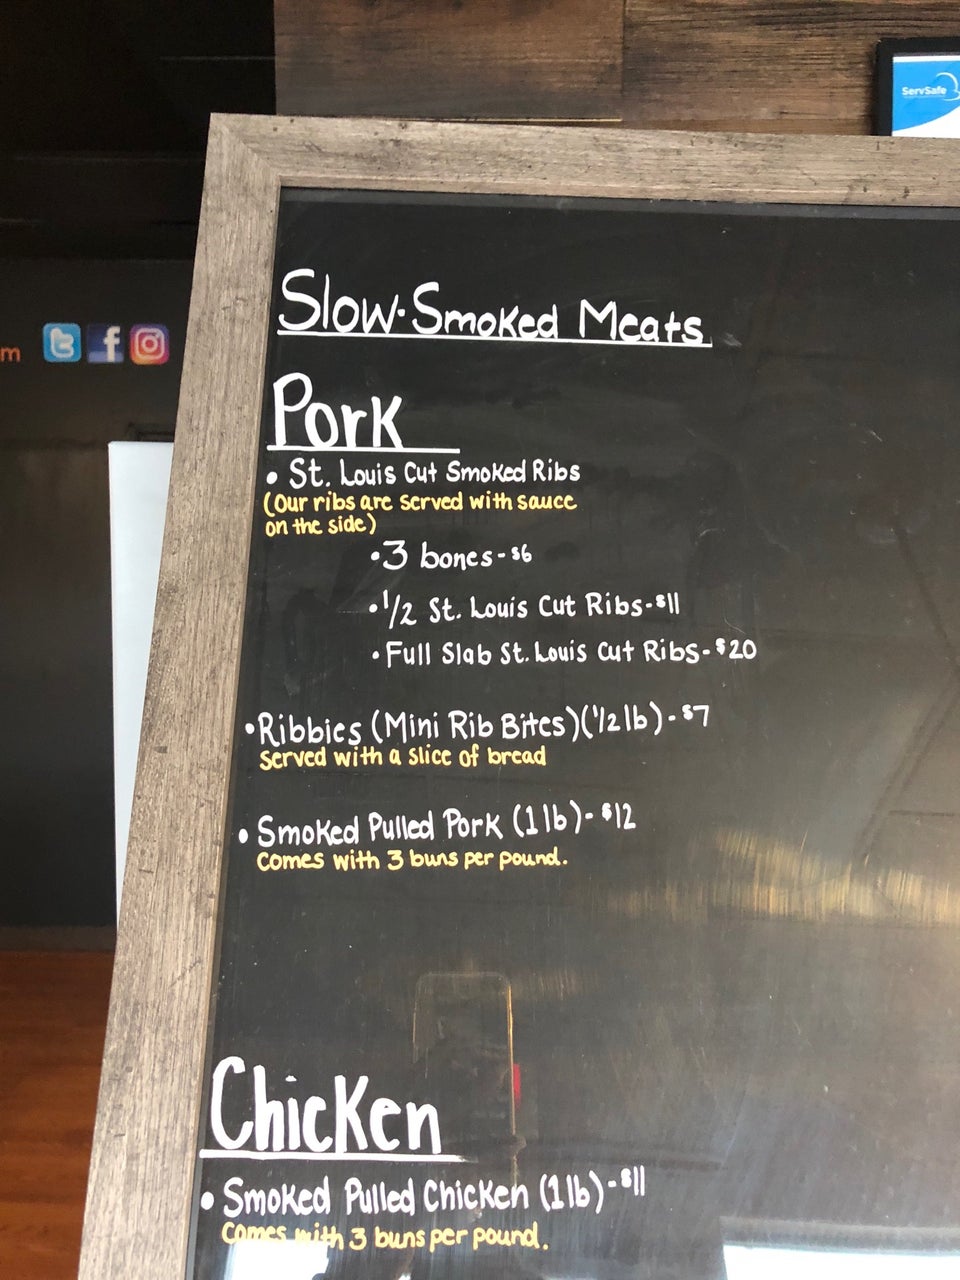 ServSafe
m
Slow-Smoked Meats
Pork
• St. Louis Cut Smoked Ribs
(Our ribs are served with sauce
on the side)
• 3 bones - $6
• 1/2 St. Louis Cut Ribs - $11
• Full Slab St. Louis Cut Ribs - $20
• Ribbies (Mini Rib Bites) (1/2 lb) - $7
Served with a slice of bread
• Smoked Pulled Pork (1 lb) - $12
Comes with 3 buns per pound.
Chicken
• Smoked Pulled Chicken (1 lb) - $11
Comes with 3 buns per pound.